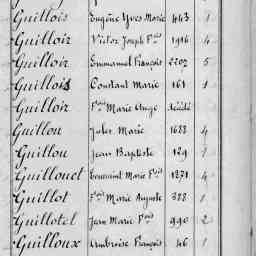 Guillois Eugène Yves Marie 443 1
Guilloir Victor Joseph Fois 1916 4
Guilloir Emmanuel François 2202 5
Guillois Constant Marie 161 1
Guilloir Fois Marie Ange décédé
Guillou Jules Marie 1688 4
Guillou Jean Baptiste 129 1
Guillouet Toussaint Marie Fois 1871 4
Guillot Fois Marie Auguste 328 1
Guillotel Jean Marie Fois 990 2
Guilloux Ambroise François 46 1